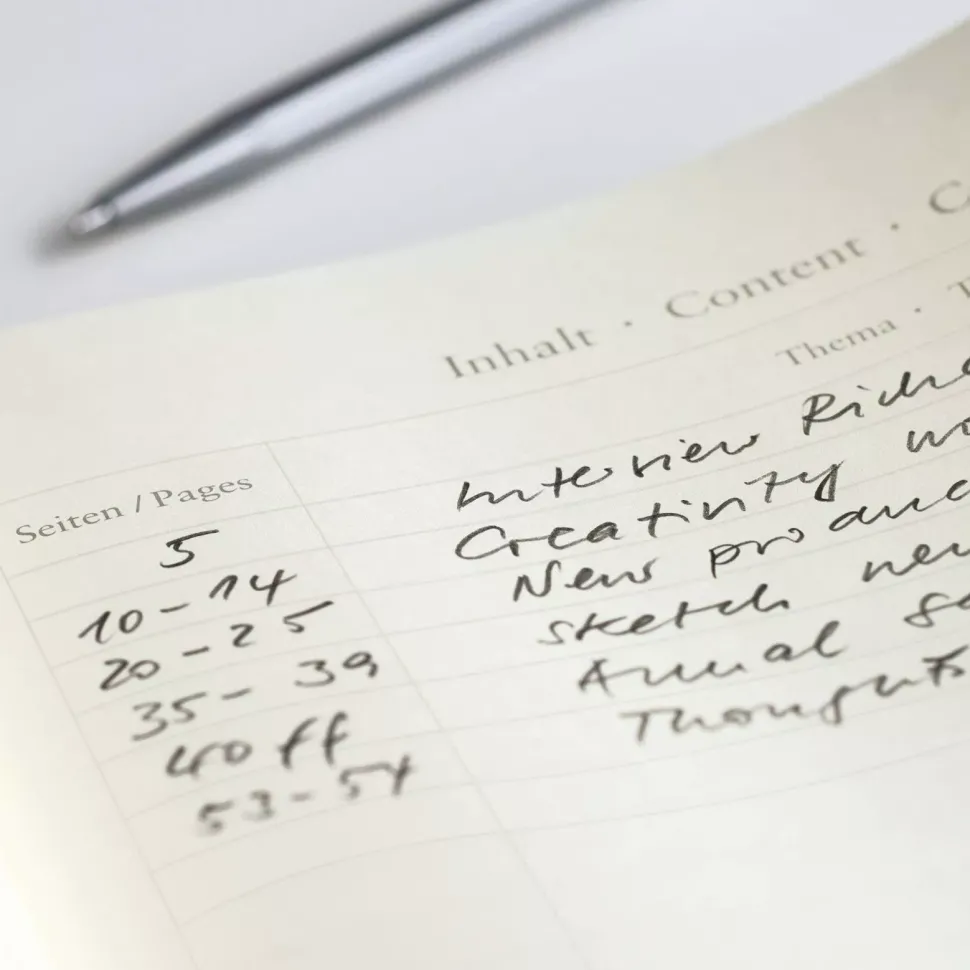 Inhalt · Content ·
Seiten / Pages Thema ·
5 Interview
10 - 14 Creativity
20 - 25 New
35 - 39 sketch
40 ff Annual
53 - 54 Thoughts